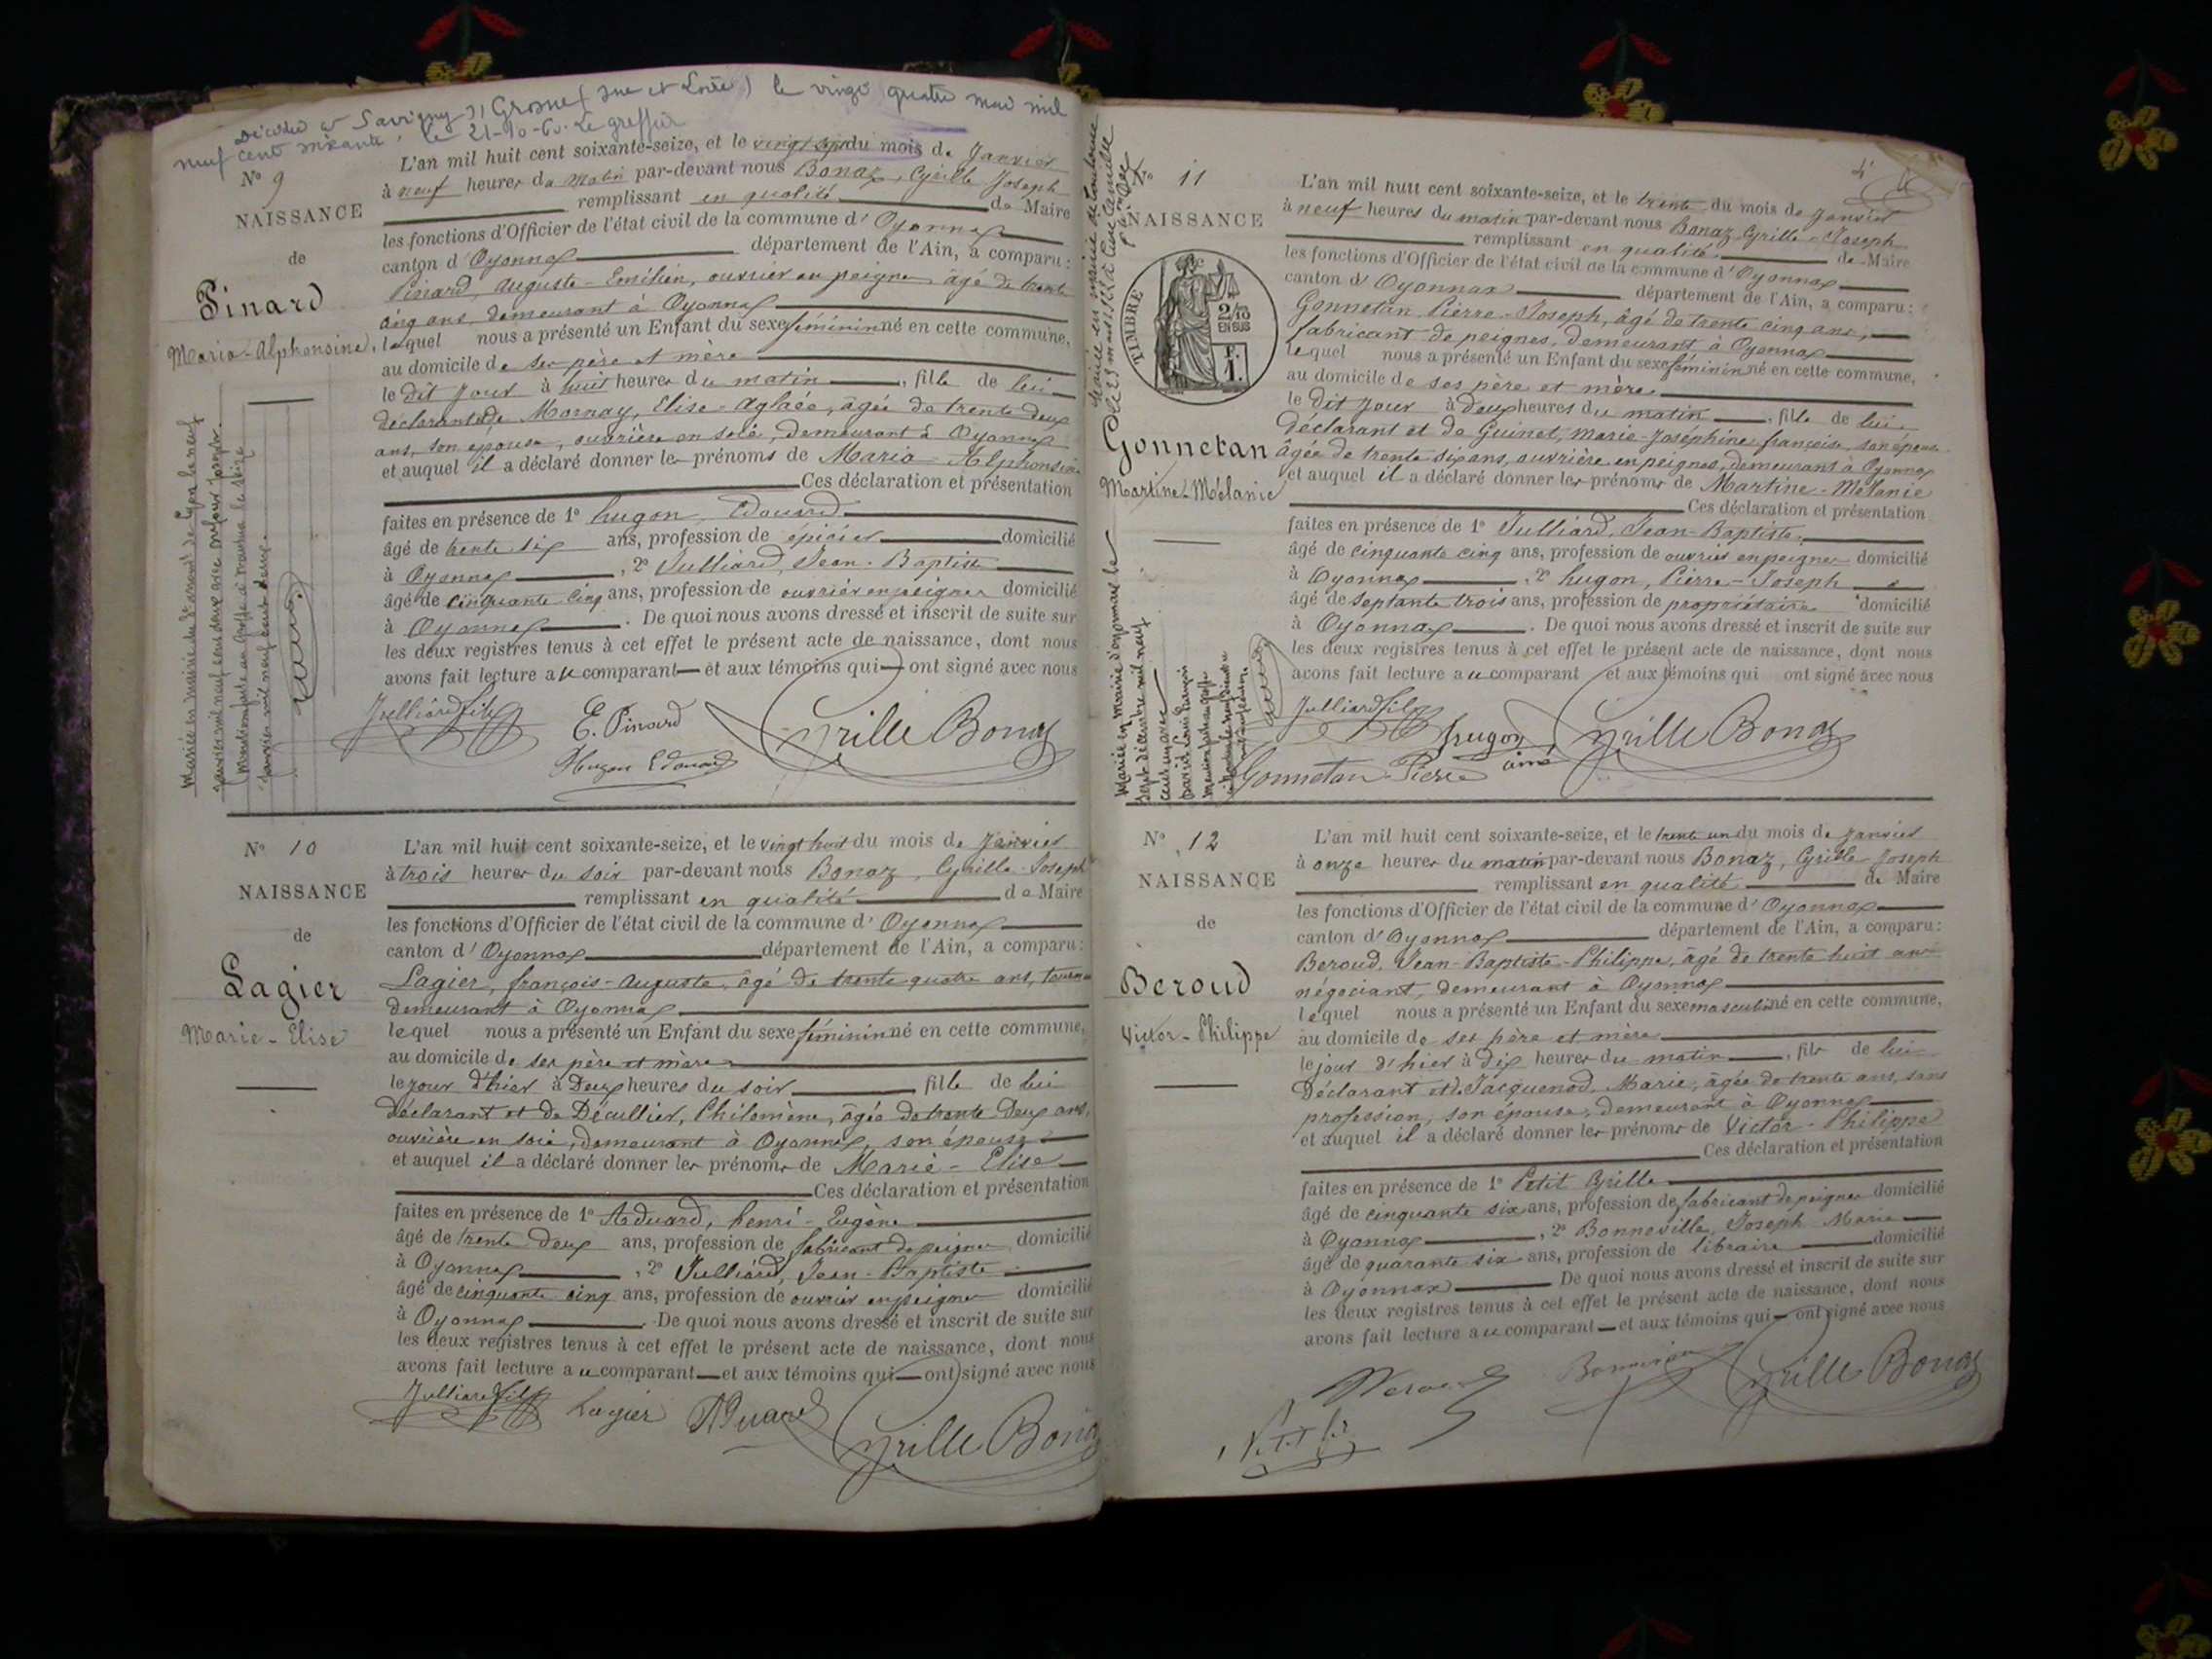 Décédée à Savigny s/ Grosne (Sne et Loire) le vingt quatre mai mil
neuf cent soixante. le 21-10-60. Le greffier
N° 9
NAISSANCE
de
Pinard
Maria-Alphonsine.
L'an mil huit cent soixante-seize, et le vingt sept du mois de Janvier
à neuf heures du matin par-devant nous Bonaz, Cyrille Joseph
remplissant en qualité de Maire
les fonctions d'Officier de l'état civil de la commune d' Oyonnax
canton d' Oyonnax département de l'Ain, a comparu:
Pinard, Auguste-Emilien, ouvrier en peignes âgé de trente
cinq ans, demeurant à Oyonnax
lequel nous a présenté un Enfant du sexe féminin né en cette commune,
au domicile de ses père et mère
le dit jour à huit heures du matin, fille de lui
déclarant et de Mornay, Elise-Aglaée, âgée de trente deux
ans, son épouse, ouvrière en soie, demeurant à Oyonnax
et auquel il a déclaré donner les prénoms de Maria Alphonsine
Ces déclaration et présentation
faites en présence de 1° hugon, Edouard
âgé de trente six ans, profession de épicier domicilié
à Oyonnax, 2° Julliard, Jean-Baptiste
âgé de cinquante cinq ans, profession de ouvrier en peignes domicilié
à Oyonnax. De quoi nous avons dressé et inscrit de suite sur
les deux registres tenus à cet effet le présent acte de naissance, dont nous
avons fait lecture au comparant et aux témoins qui ont signé avec nous
Julliard fils E. Pinard Cyrille Bonaz
Hugon Edouard
Mariée en mairie du arrond<sup>t</sup> de Lyon le neuf
janvier mil neuf cent deux avec
Mention faite au greffe à le seize
janvier mil neuf cent deux.
N° 10
NAISSANCE
de
Lagier
Marie-Elise
L'an mil huit cent soixante-seize, et le vingt huit du mois de Janvier
à trois heures du soir par-devant nous Bonaz, Cyrille-Joseph
remplissant en qualité de Maire
les fonctions d'Officier de l'état civil de la commune d' Oyonnax
canton d' Oyonnax département de l'Ain, a comparu:
Lagier, françois-Auguste, âgé de trente quatre ans, tourneur
demeurant à Oyonnax
lequel nous a présenté un Enfant du sexe féminin né en cette commune,
au domicile de ses père et mère
le jour d'hier à Deux heures du soir fille de lui
Déclarant et de Décullier, Philomène, âgée de trente Deux ans,
ouvrière en soie, demeurant à Oyonnax, son épouse
et auquel il a déclaré donner les prénoms de Marie-Elise
Ces déclaration et présentation
faites en présence de 1° Arduard, henri-Eugène
âgé de trente Deux ans, profession de fabricant de peignes domicilié
à Oyonnax, 2° Julliard, Jean-Baptiste
âgé de cinquante cinq ans, profession de ouvrier en peignes domicilié
à Oyonnax. De quoi nous avons dressé et inscrit de suite sur
les deux registres tenus à cet effet le présent acte de naissance, dont nous
avons fait lecture au comparant et aux témoins qui ont signé avec nous
Julliard fils Lagier Cyrille Bonaz
N° 11
NAISSANCE
TIMBRE
2/10
EN SUS
F.
1.
Gonnetan
Martine-Mélanie
L'an mil huit cent soixante-seize, et le trente du mois de Janvier
à neuf heures du matin par-devant nous Bonaz Cyrille-Joseph
remplissant en qualité de Maire
les fonctions d'Officier de l'état civil de la commune d' Oyonnax
canton d' Oyonnax département de l'Ain, a comparu:
Gonnetan Pierre-Joseph, âgé de trente cinq ans,
fabricant de peignes, demeurant à Oyonnax
lequel nous a présenté un Enfant du sexe féminin né en cette commune,
au domicile de ses père et mère
le dit jour à deux heures du matin, fille de lui
déclarant et de Guinet, Marie-Joséphine françoise, son épouse
âgée de trente six ans, ouvrière en peignes, demeurant à Oyonnax
et auquel il a déclaré donner les prénoms de Martine-Mélanie
Ces déclaration et présentation
faites en présence de 1° Julliard, Jean-Baptiste,
âgé de cinquante cinq ans, profession de ouvrier en peignes domicilié
à Oyonnax, 2° hugon, Pierre-Joseph
âgé de septante trois ans, profession de propriétaire domicilié
à Oyonnax. De quoi nous avons dressé et inscrit de suite sur
les deux registres tenus à cet effet le présent acte de naissance, dont nous
avons fait lecture au comparant et aux témoins qui ont signé avec nous
Julliard fils hugon Cyrille Bonaz
Gonnetan Pierre aîné
Mariée en mairie d'Oyonnax le
sept décembre mil neuf
cent un avec
N° 12
NAISSANCE
de
Beroud
Victor-Philippe
L'an mil huit cent soixante-seize, et le trente un du mois de Janvier
à onze heures du matin par-devant nous Bonaz, Cyrille-Joseph
remplissant en qualité de Maire
les fonctions d'Officier de l'état civil de la commune d' Oyonnax
canton d' Oyonnax département de l'Ain, a comparu:
Beroud, Jean-Baptiste-Philippe, âgé de trente huit ans
négociant, demeurant à Oyonnax
lequel nous a présenté un Enfant du sexe masculin né en cette commune,
au domicile de ses père et mère
le jour d'hier à dix heures du matin, fils de lui
Déclarant et de Jacquenod, Marie, âgée de trente ans, sans
profession, son épouse, demeurant à Oyonnax
et auquel il a déclaré donner les prénoms de Victor-Philippe
Ces déclaration et présentation
faites en présence de 1° Petit Cyrille
âgé de cinquante six ans, profession de fabricant de peignes domicilié
à Oyonnax, 2° Bonneville, Joseph Marie
âgé de quarante six ans, profession de libraire domicilié
à Oyonnax De quoi nous avons dressé et inscrit de suite sur
les deux registres tenus à cet effet le présent acte de naissance, dont nous
avons fait lecture au comparant et aux témoins qui ont signé avec nous
Beroud Cyrille Bonaz